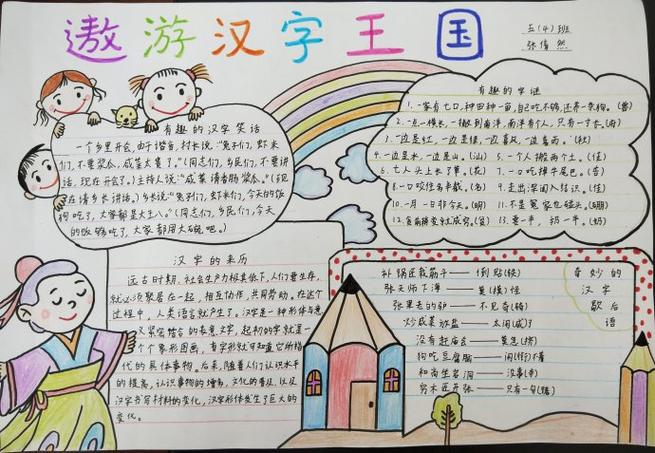 遨游汉字王国
五(4)班
张倩然
有趣的汉字笑话
一个乡里开会,由于谐音,村长说:“兔子们,虾米
们,不要酱瓜,咸菜太贵了。”(同志们,乡民们,不要讲
话,现在开会了。)主持人说:“咸菜请香肠酱瓜。”(现
在请乡长讲话。)乡长说:“兔子们,虾米们,今天的饭
狗吃了,大家都是大王八。”(同志们,乡民们,今天
的饭够吃了,大家都用大碗吧。)
有趣的字谜
1.一家有七口,种田种一亩,自己吃不够,还养一条狗。(兽)
2.一点一横长,一撇到南洋,南洋有个人,只有一寸长。(府)
3.一边是红,一边是绿,一边喜风,一边喜雨。(秋)
4.一边是水,一边是山。(汕)
5.一个人搬两个土。(佳)
6.七人头上长了草。(花)
7.一口咬掉牛尾巴。(告)
8.一口咬住多半截。(名)
9.走出深闺人结识。(佳)
10.一月一日非今天。(明)
11.不是冤家也碰头。(硼)
13.要一半,扔一半。(奶)
汉字的来历
远古时期,社会生产力极其低下,人们要生存,
就必须聚居在一起,相互协作,共同劳动。在这个
过程中,人类语言就产生了。汉字是一种形体与意
义紧密结合的表意文字,起初的字就是一
个个象形图画,看字形就可知道它所指
代的具体事物。后来,随着人们认识水平
的提高,认识事物的增多,文化的普及,以及
汉字书写材料的变化,汉字形体发生了巨大的
变化。
奇妙的
汉字
歇后
语
补锅匠栽筋斗——倒贴(铁)
张天师下海——莫(摸)怪
张果老的驴——不见奇(骑)
炒咸菜放盐——太闲(咸)了
没有赶庙去——莫急(挤)
狗吃豆腐脑——闲(衔)不着
和尚住岩洞——没事(寺)
穷木匠开张——只有一句(锯)